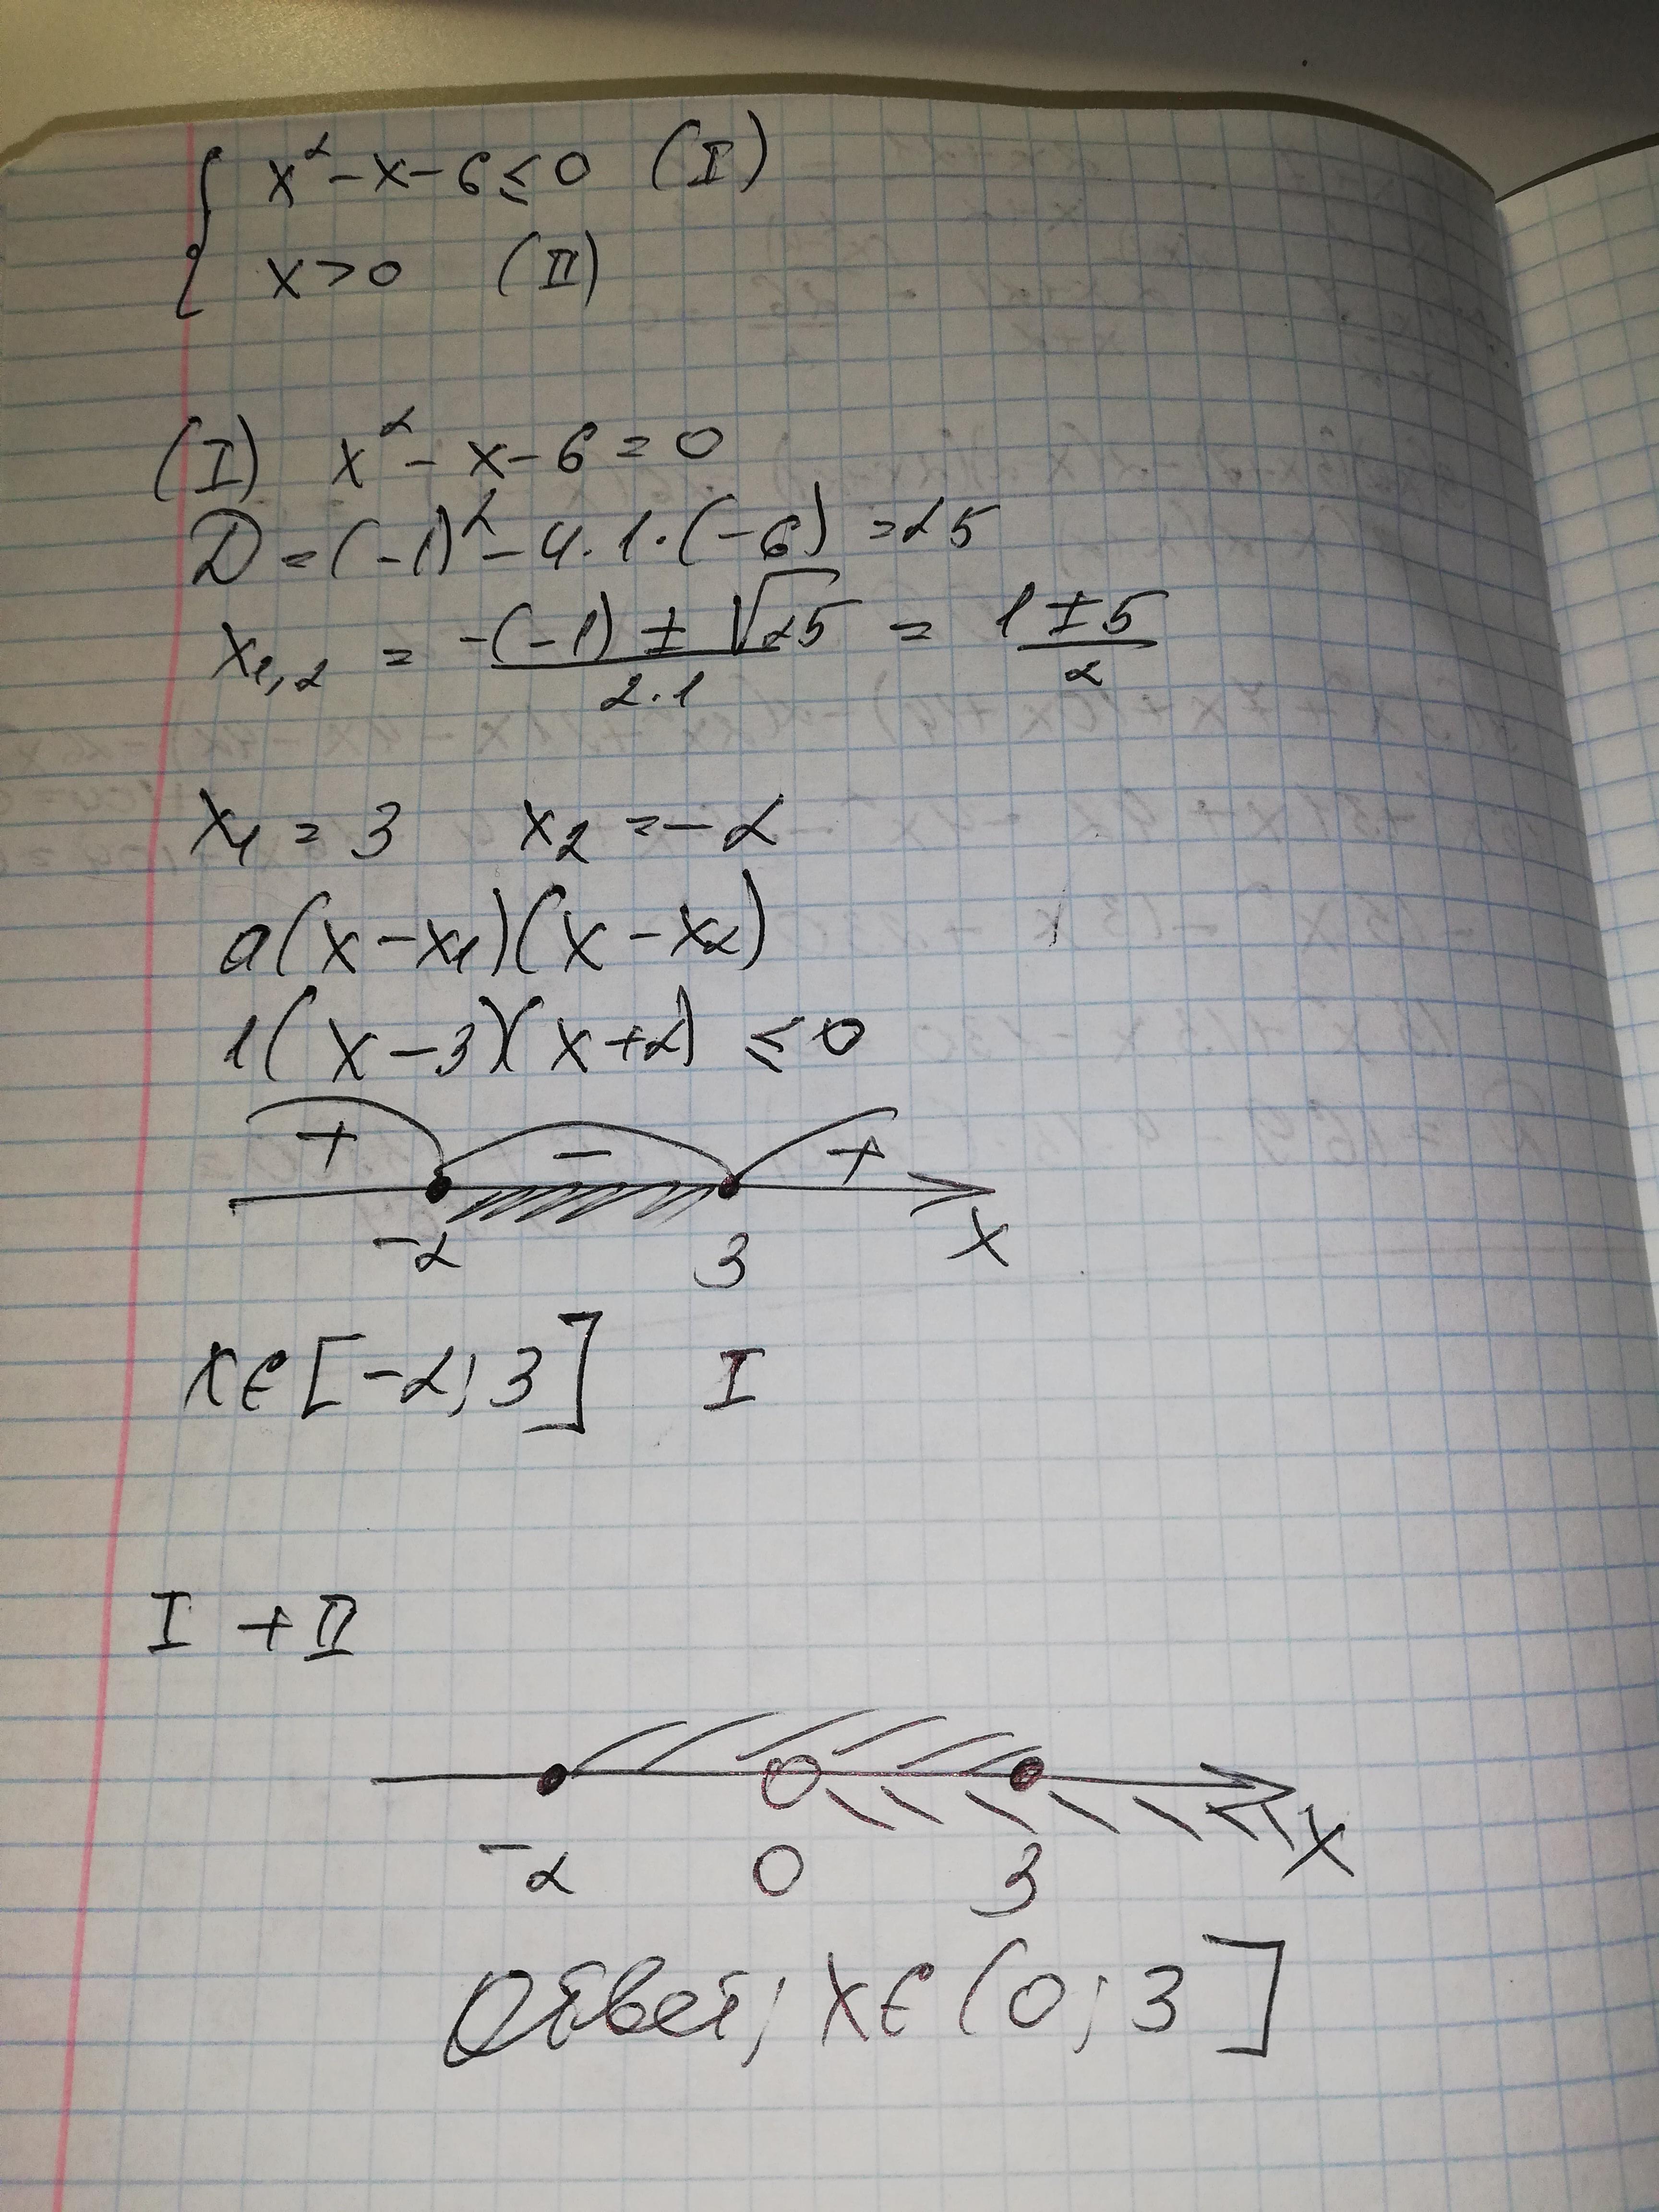 { x² - x - 6 ≤ 0 (I)
x > 0 (II)
(I) x² - x - 6 = 0
D = (-1)² - 4·1·(-6) = 25
x₁,₂ = (-(-1) ± √25)/(2·1) = (1 ± 5)/2
x₁ = 3 x₂ = -2
a(x - x₁)(x - x₂)
1(x - 3)(x + 2) ≤ 0
+ - +
-2 3 x
x ∈ [-2; 3] I
I + II
-2 0 3 x
Ответ; x ∈ (0; 3]